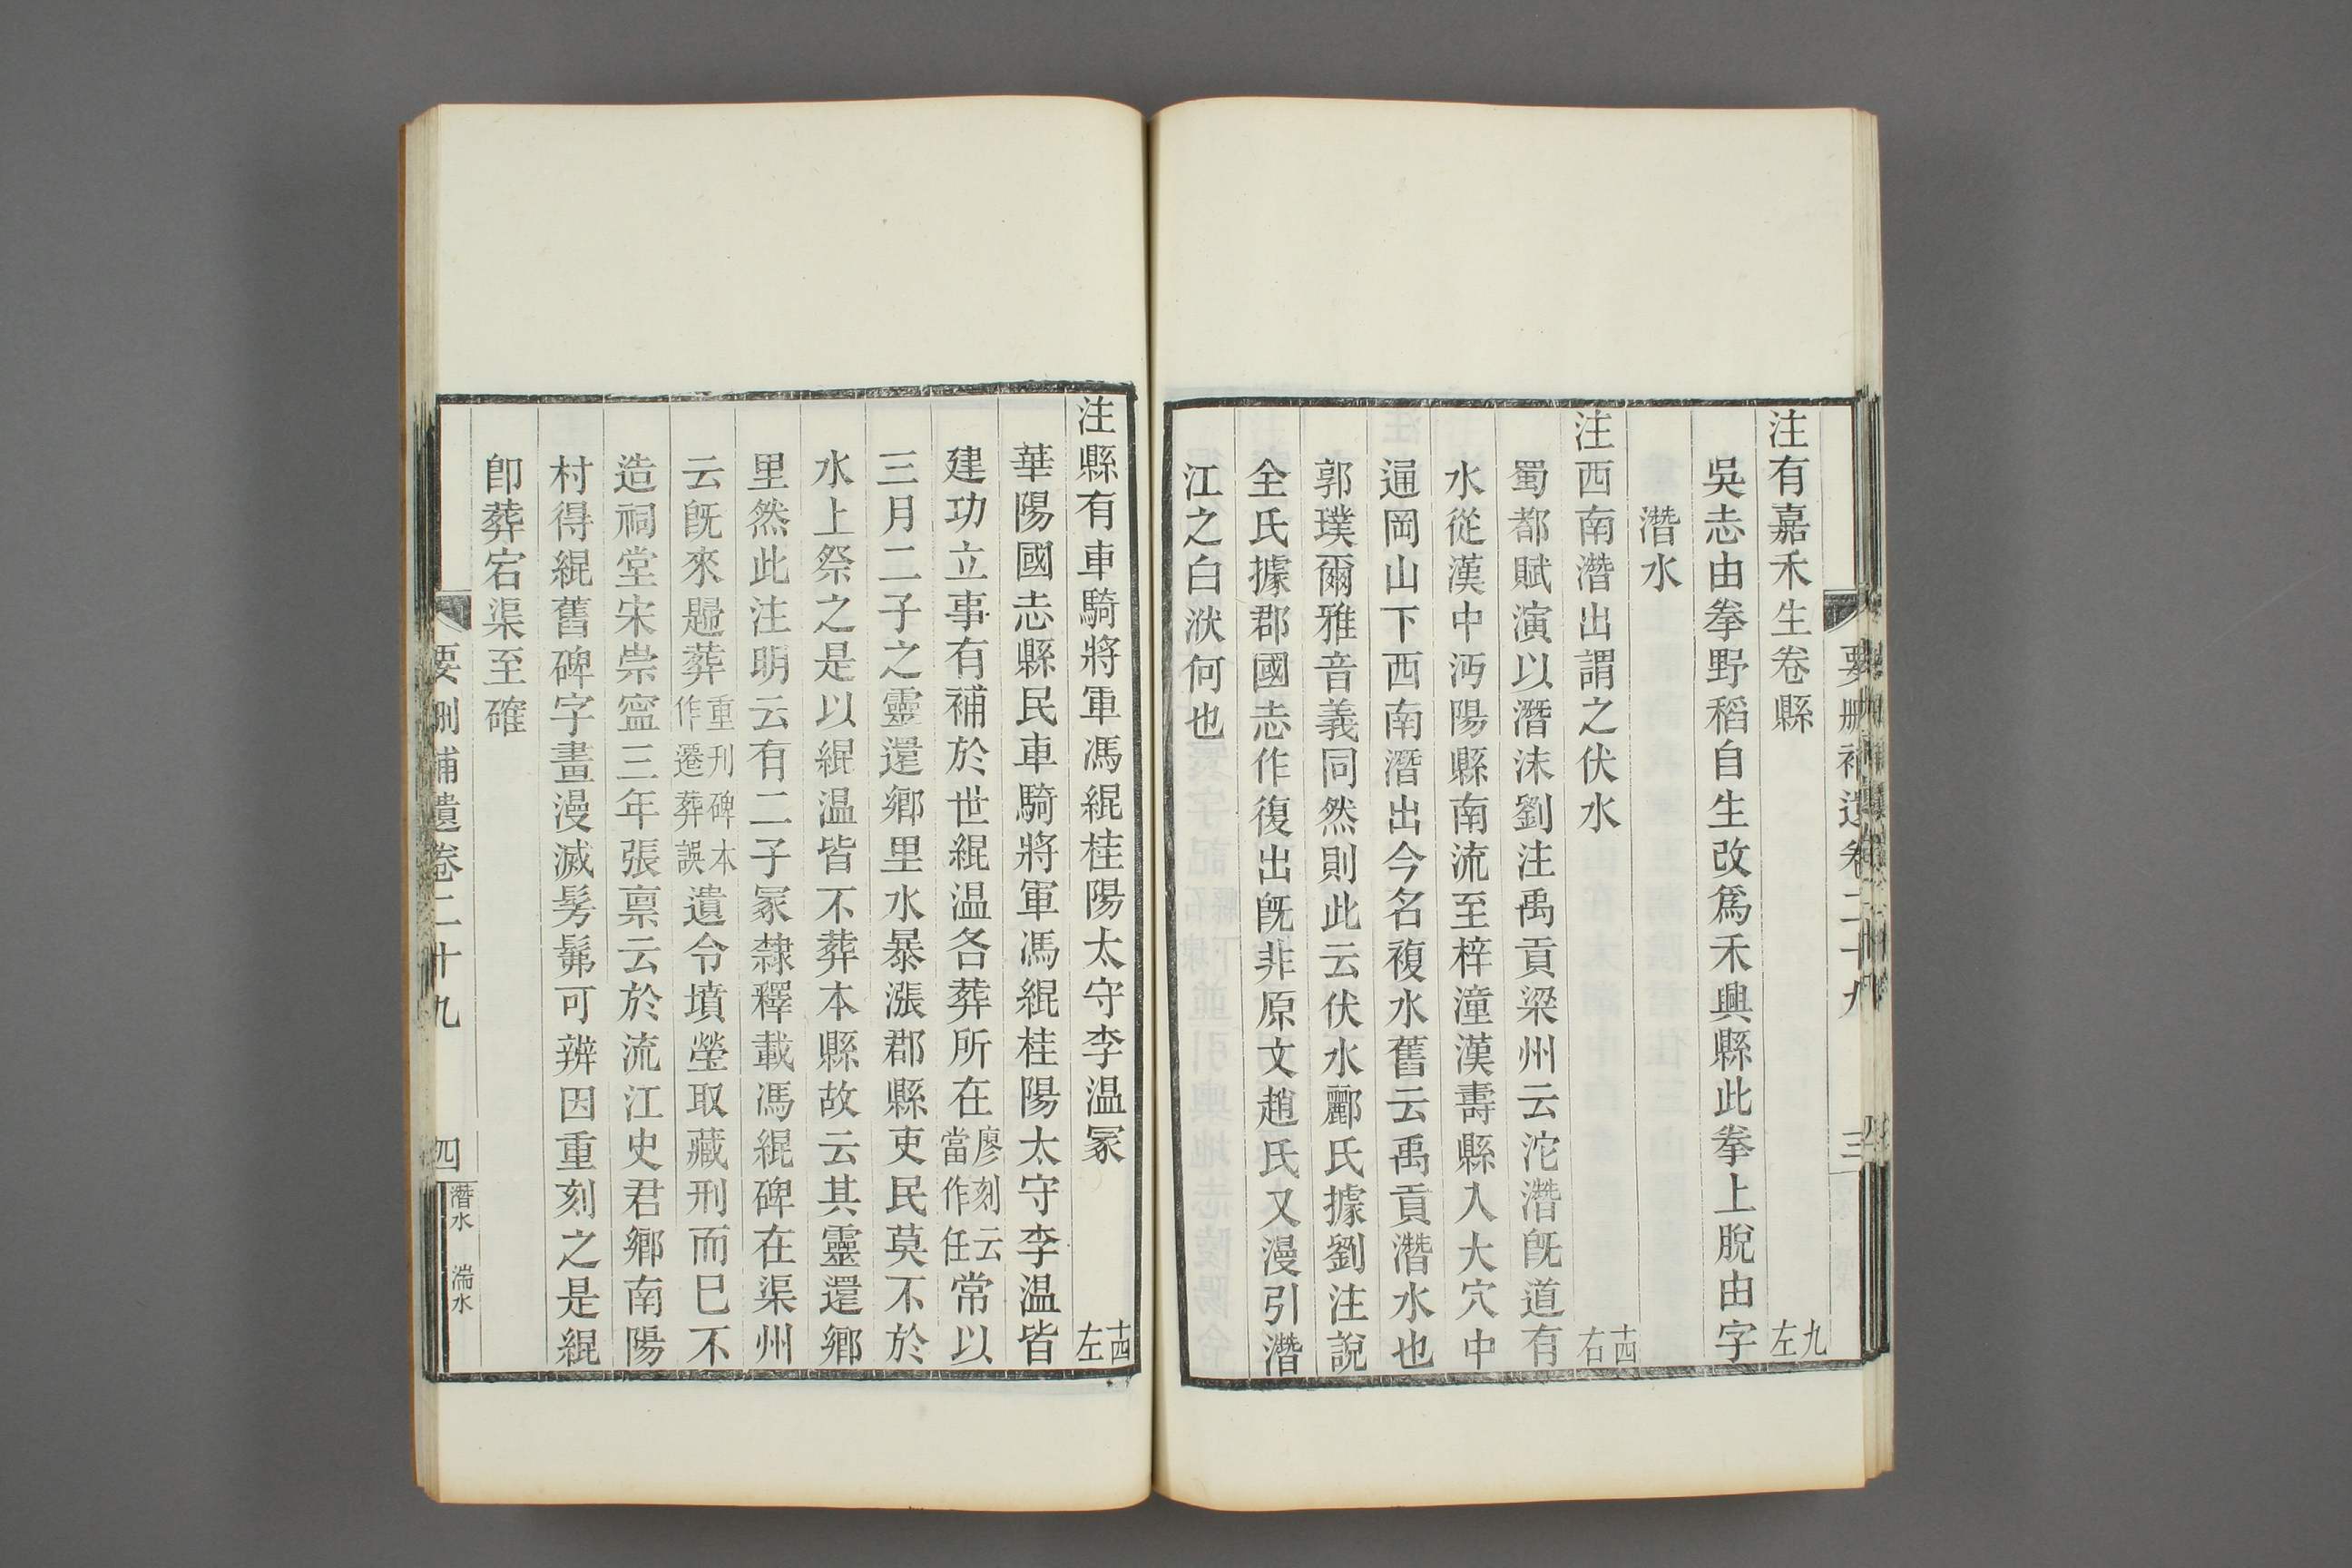 要刪補遺卷二十九 三
注有嘉禾生卷縣 九左
吳志由拳野稻自生改爲禾興縣此拳上脫由字
潛水
注西南潛出謂之伏水 十四右
蜀都賦演以潛沬劉注禹貢梁州云沱潛旣道有
水從漢中沔陽縣南流至梓潼漢壽縣入大穴中
通岡山下西南潛出今名複水舊云禹貢潛水也
郭璞爾雅音義同然則此云伏水酈氏據劉注說
全氏據郡國志作復出旣非原文趙氏又漫引潛
江之白洑何也
注縣有車騎將軍馮緄桂陽太守李温冢 十四左
華陽國志縣民車騎將軍馮緄桂陽太守李温皆
建功立事有補於世緄温各葬所在廖刻云當作任常以
三月二子之靈還鄉里水暴漲郡縣吏民莫不於
水上祭之是以緄温皆不葬本縣故云其靈還鄉
里然此注明云有二子冢隸釋載馮緄碑在渠州
云旣來歸葬重刊碑本作遷葬誤遺令墳塋取藏刑而巳不
造祠堂宋崇寧三年張稟云於流江史君鄉南陽
村得緄舊碑字畫漫滅髣髴可辨因重刻之是緄
卽葬宕渠至確
要刪補遺卷二十九 四 潛水 湍水